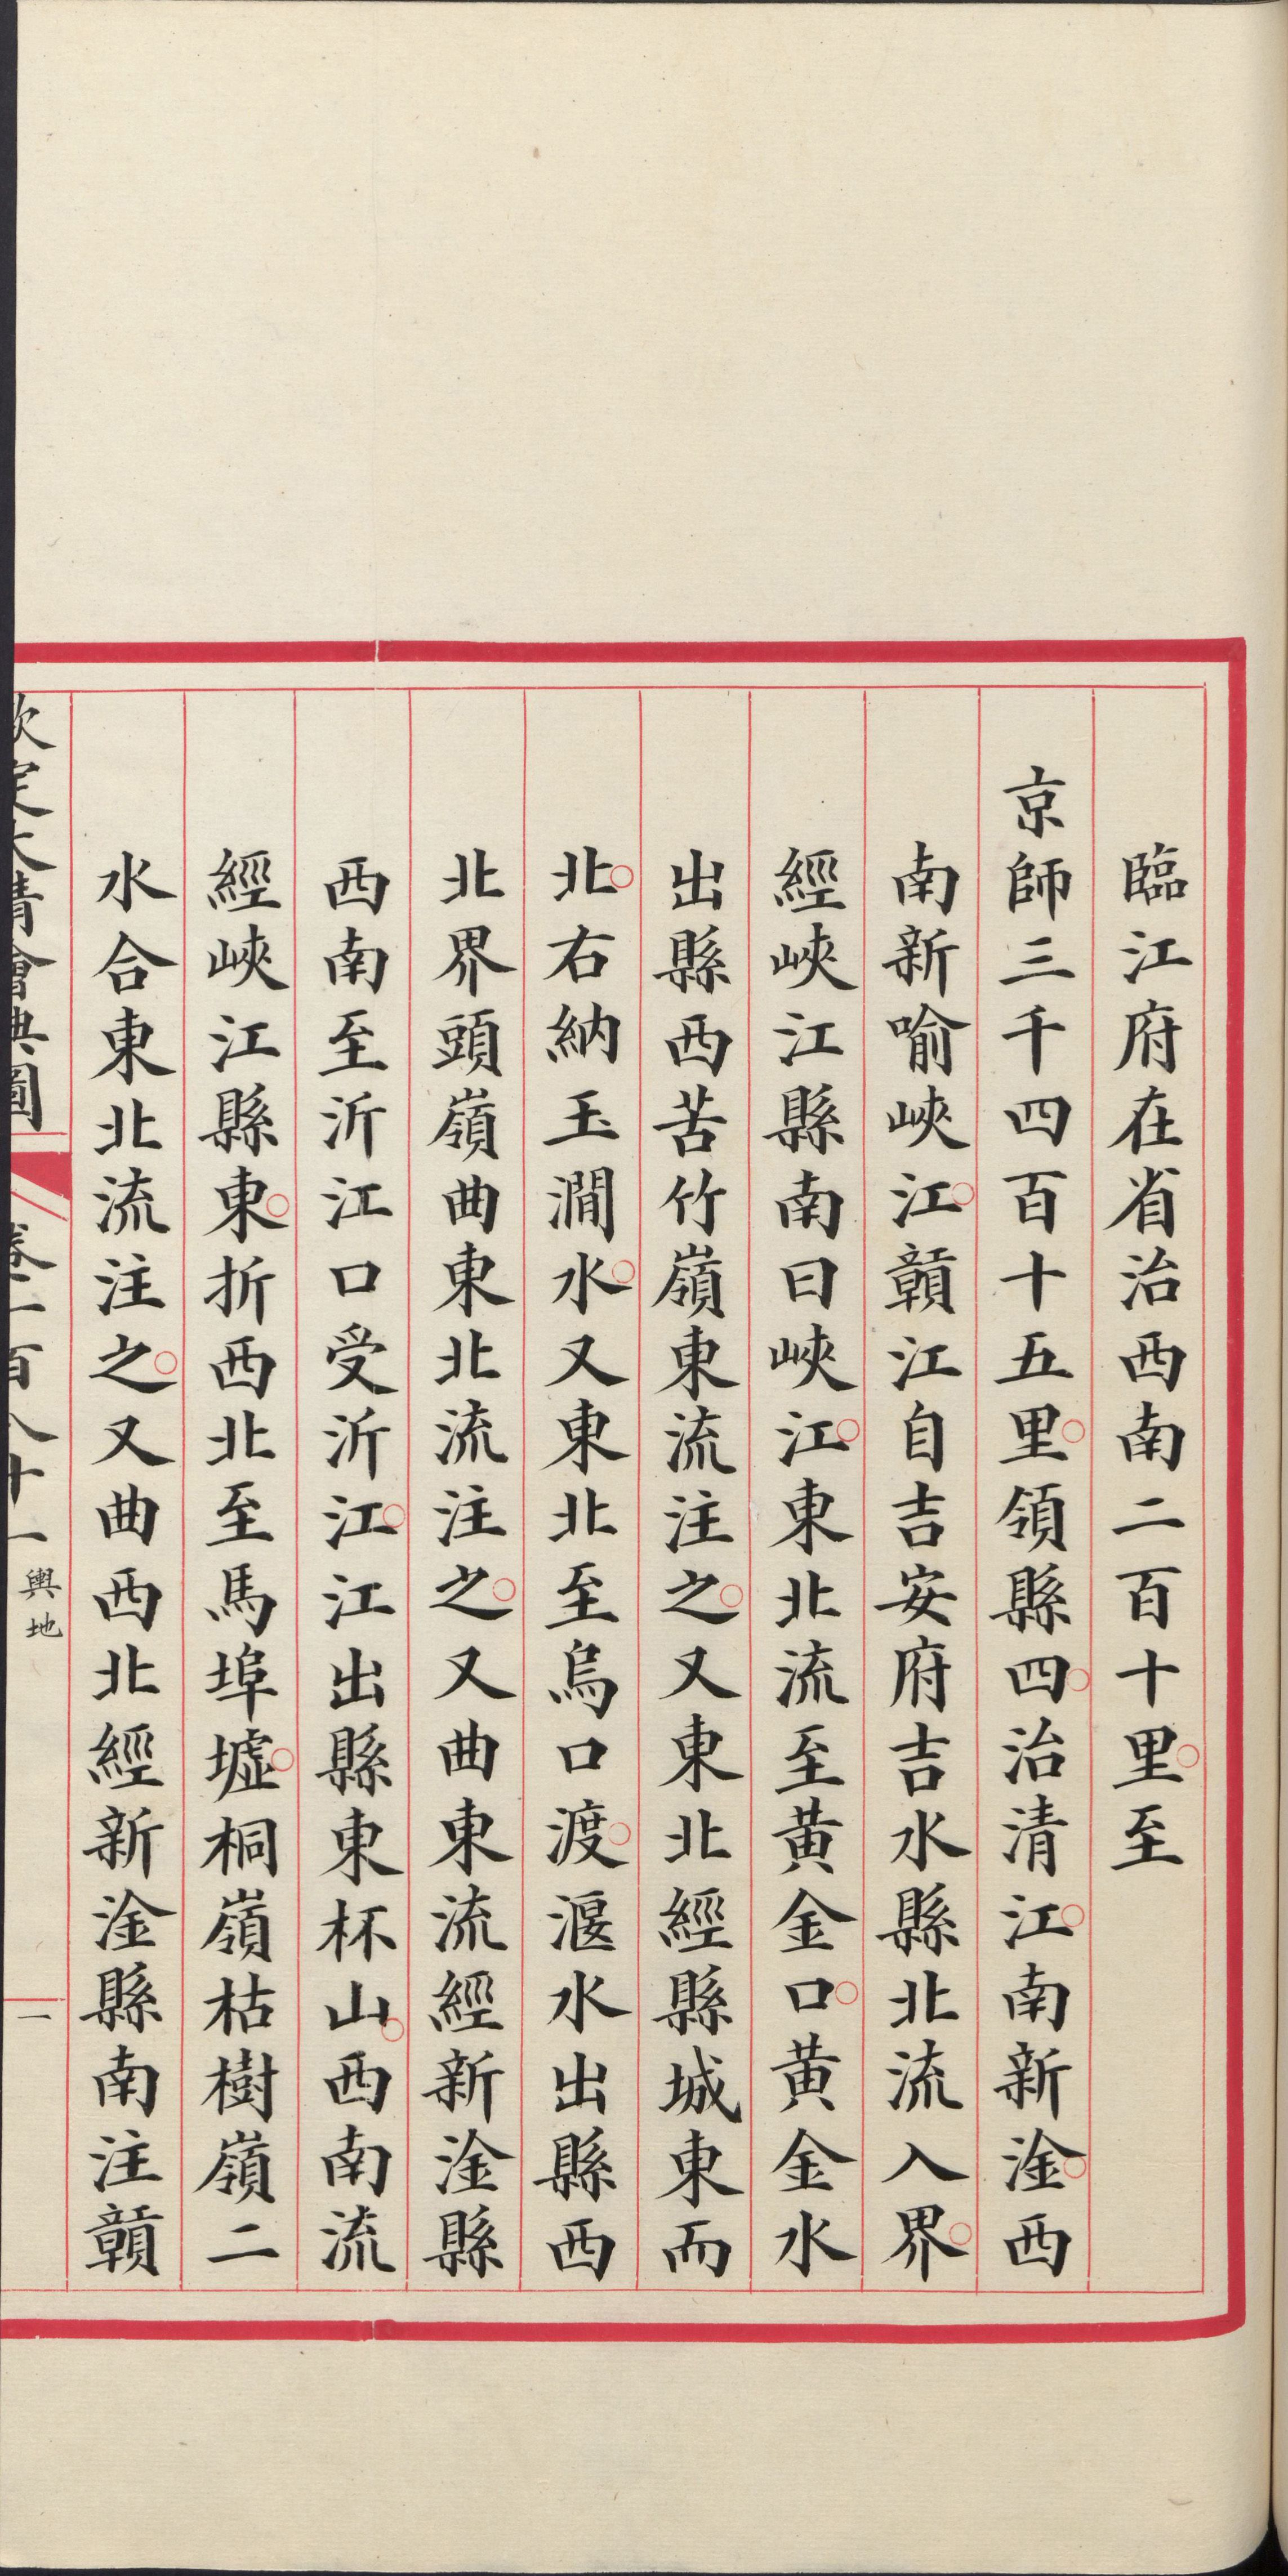 臨江府在省治西南二百十里至
京師三千四百十五里領縣四治清江南新淦西
南新喻峽江贛江自吉安府吉水縣北流入界
經峽江縣南曰峽江東北流至黃金口黃金水
出縣西苦竹嶺東流注之又東北經縣城東而
北右納玉澗水又東北至烏口渡漚水出縣西
北界頭嶺曲東北流注之又曲東流經新淦縣
西南至沂江口受沂江江出縣東杯山西南流
經峽江縣東折西北至馬埠墟桐嶺枯樹嶺二
水合東北流注之又曲西北經新淦縣南注贛
欽定大清會典圖 卷二百八十一 輿地 一